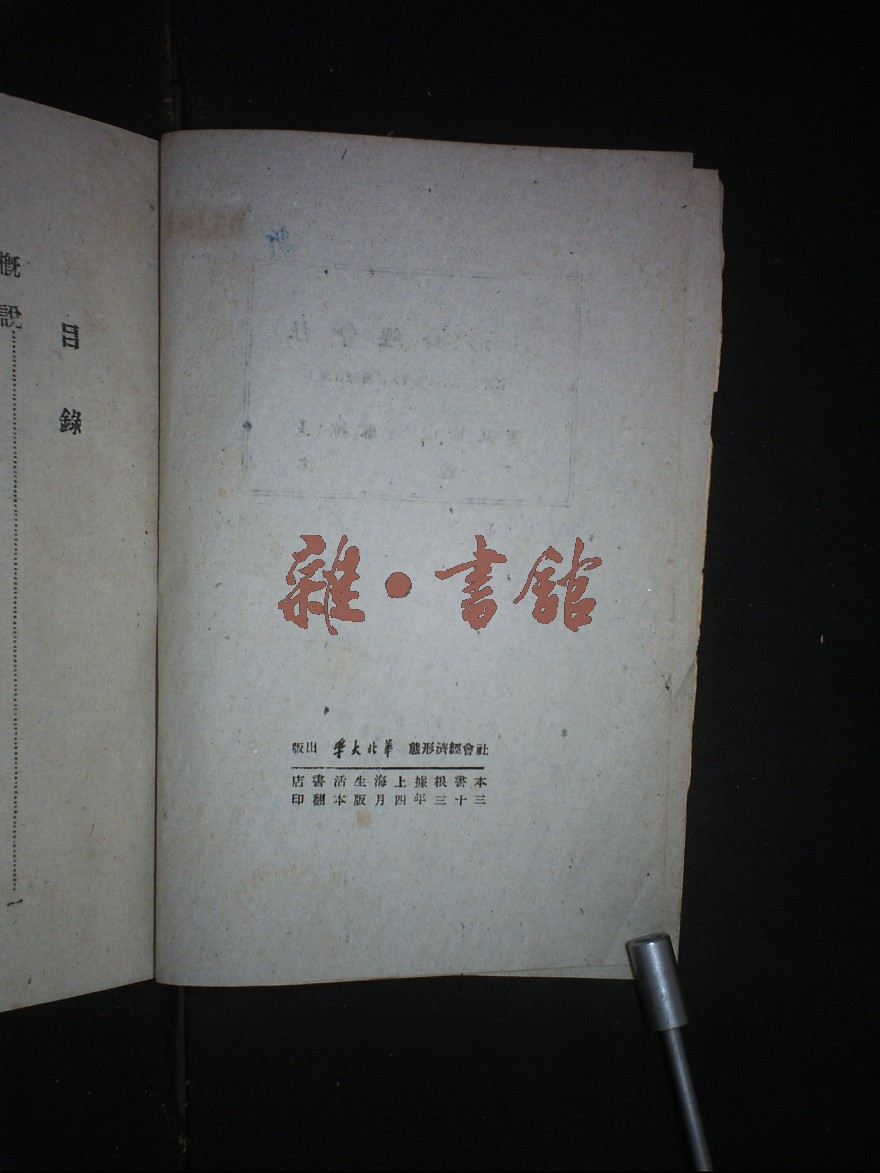 雜·書館
社會經濟形態 華北大學 出版
本書根據上海生活書店
三十三年四月版本翻印
目錄
概說……一